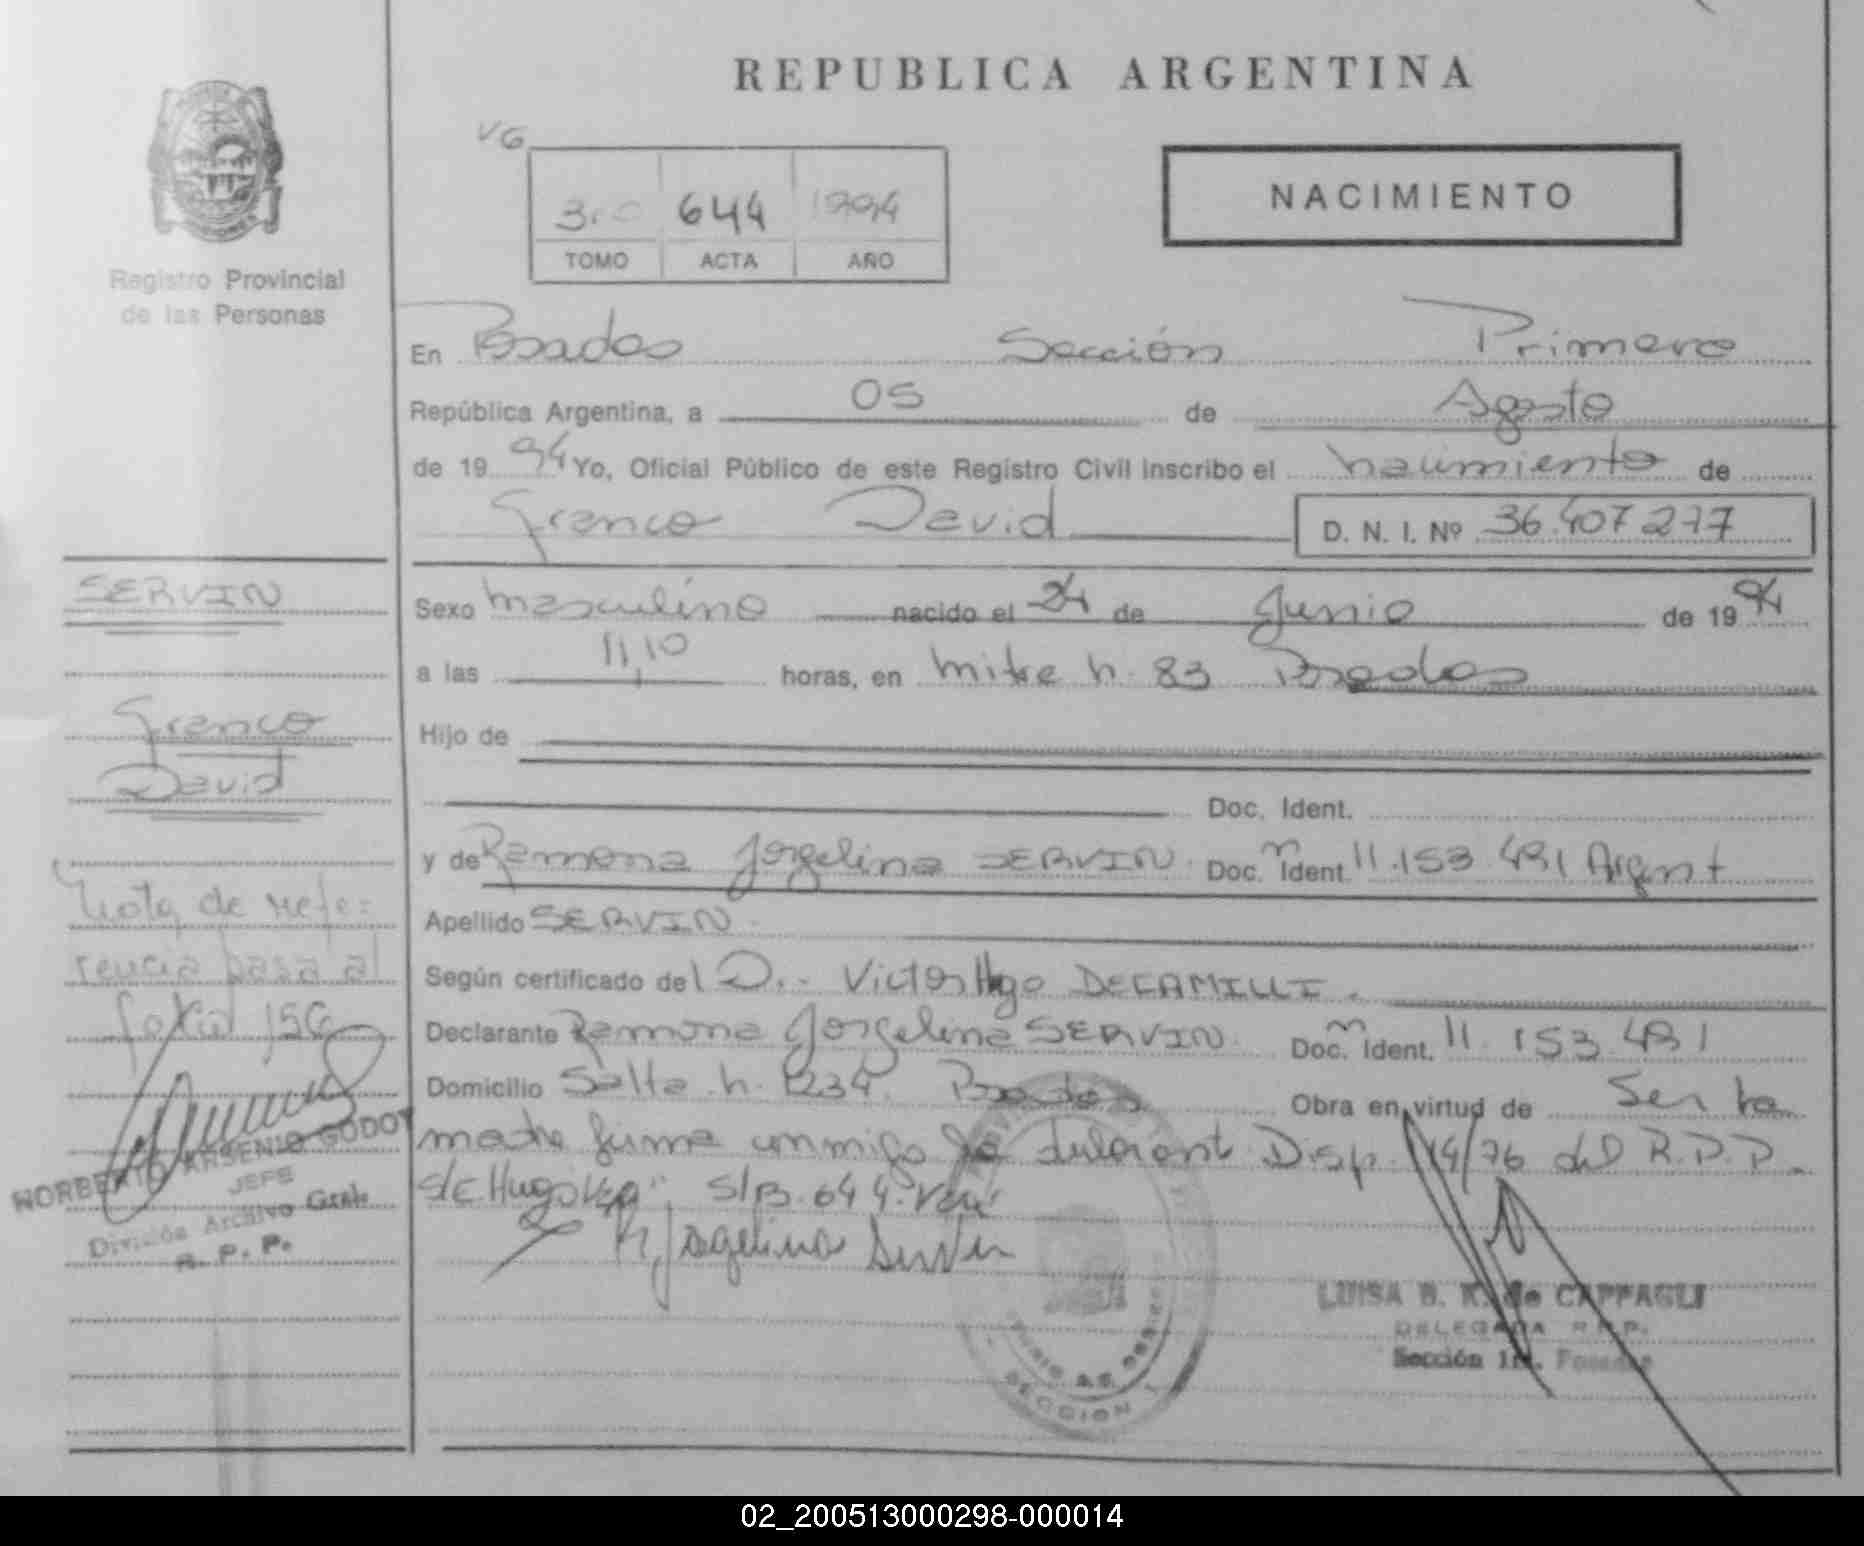 REPUBLICA ARGENTINA
Registro Provincial
de las Personas
VG
644 1994
TOMO ACTA AÑO
NACIMIENTO
En Posadas Sección Primera
República Argentina, a 05 de Agosto
de 19 94 Yo, Oficial Público de este Registro Civil inscribo el nacimiento de
Franco David D. N. I. Nº 36.407 277
Sexo masculino nacido el 24 de Junio de 19 94
a las 11,10 horas, en Mitre n. 83 Posadas
Hijo de
Doc. Ident.
y de Ramona Jorgelina SERVIN. Doc. Ident. 11.153.491 Argent
Apellido SERVIN.
Según certificado del D.. Victor Hugo DECAMILLI.
Declarante Ramona Jorgelina SERVIN. Doc. Ident. 11.153.491
Domicilio Salta n. 1234. Posadas Obra en virtud de Ser la
madre firma conmigo la Disp. 14/76 del R.P.P.
S/B. 644.
R. Jorgelina Servin
SERVIN
Franco
David
Nota de refe=
rencia pasa al
NORBERTO ARSENIO GODOY
JEFE
División Archivo Gral.
R. P. P.
SECCION 1
LUISA B. K. de CAPPAGLI
DELEGADA R.P.P.
Sección 1ra. Posadas
02_200513000298-000014